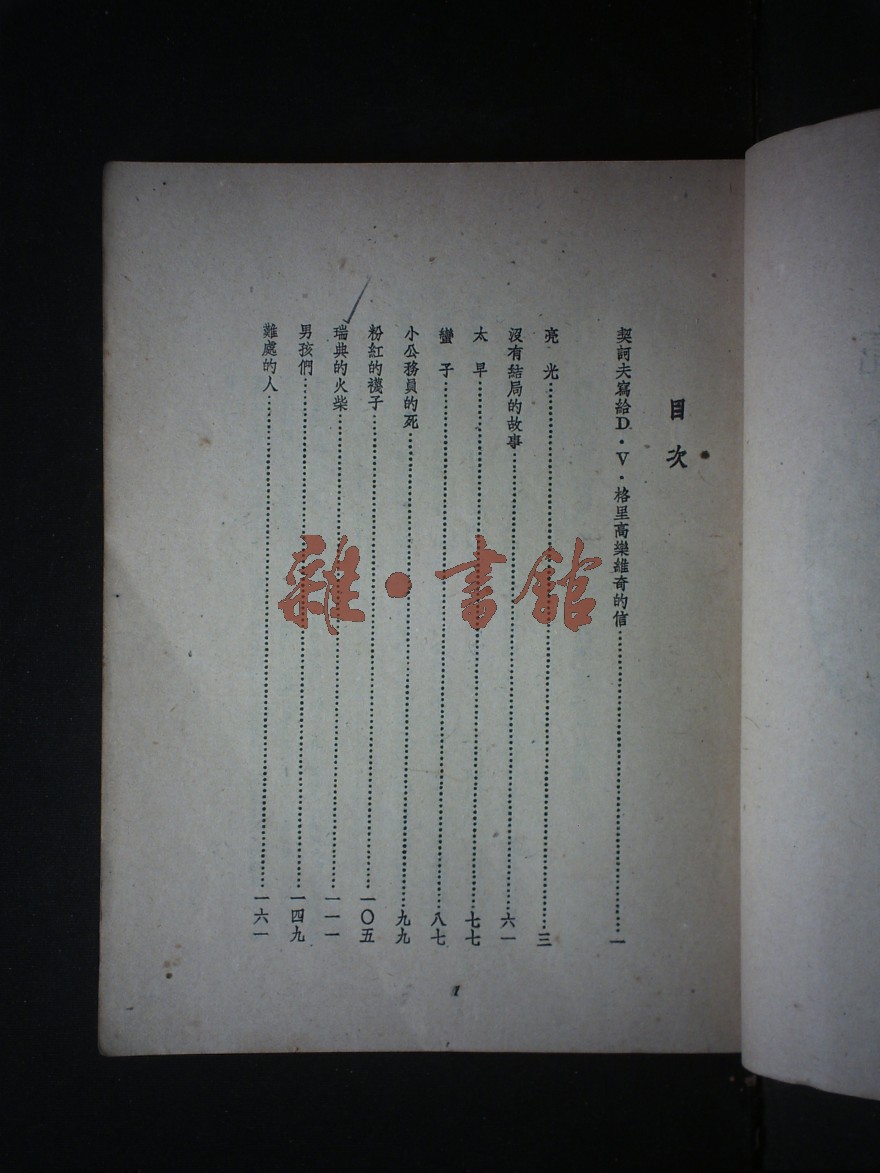 目次
契訶夫寫給D·V·格里高樂維奇的信……一
亮光……三
沒有結局的故事……六一
太早……七七
蠻子……八七
小公務員的死……九九
粉紅的襪子……一〇五
瑞典的火柴……一一一
男孩們……一四九
難處的人……一六一
1
雜·書館